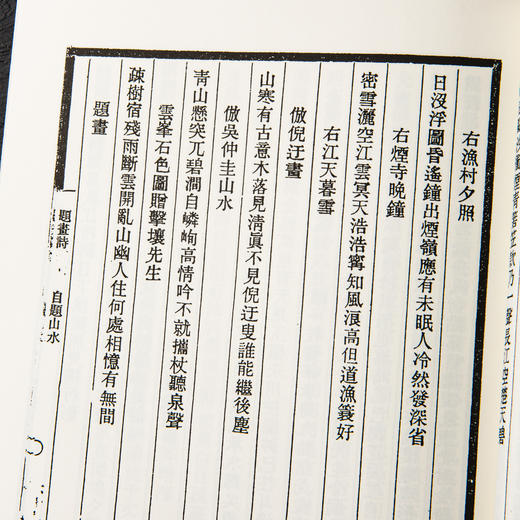 右漁村夕照
日沒浮圖昏遙鐘出煙嶺應有未眠人冷然發深省
右煙寺晚鐘
密雪灑空江雲冥天浩浩寗知風浪高但道漁簑好
右江天暮雪
倣倪迂畫
山寒有古意木落見淸眞不見倪迂叟誰能繼後塵
倣吳仲圭山水
靑山懸突兀碧澗自嶙峋高情吟不就攜杖聽泉聲
雲峯石色圖贈擊壤先生
疎樹宿殘雨斷雲開亂山幽人住何處相憶有無間
題畫
題畫詩
自題山水